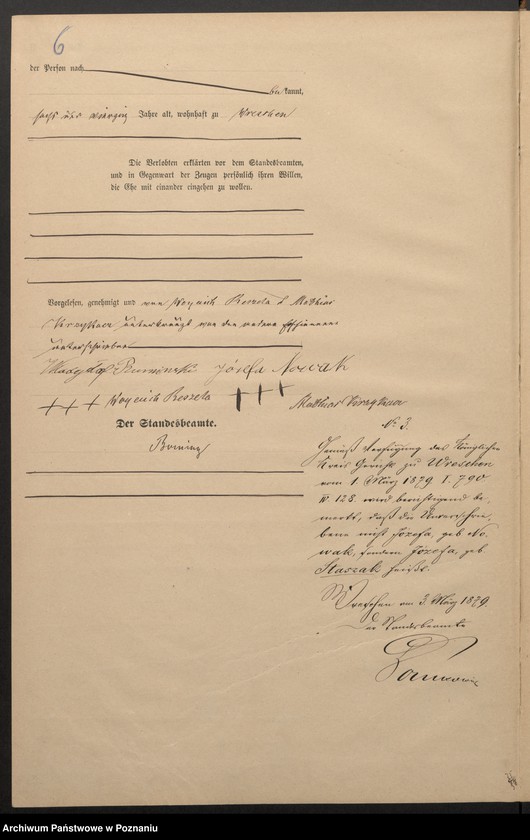 6
der Person nach
be kannt,
sechs und vierzig Jahre alt, wohnhaft zu Wreschen
Die Verlobten erklärten vor dem Standesbeamten,
und in Gegenwart der Zeugen persönlich ihren Willen,
die Ehe mit einander eingehen zu wollen.
Vorgelesen, genehmigt und von Woyciech Reszela & Mathias
unterkreuzt von den
unterschrieben
Józefa Nowak
+++ Woyciech Reszela +++ Mathias
Der Standesbeamte.
№ 3.
Gemäß Verfügung des Königlichen
Kreis Gerichts zu Wreschen
vom 1. März 1879 I. 790
IV 128 wird berichtigend be-
merkt, daß die Unterschrie-
bene nicht Józefa, geb No-
wak, sondern Józefa, geb
Staszak heißt.
Wreschen am 3. März 1879.
Der Standesbeamte
Archiwum Państwowe w Poznaniu